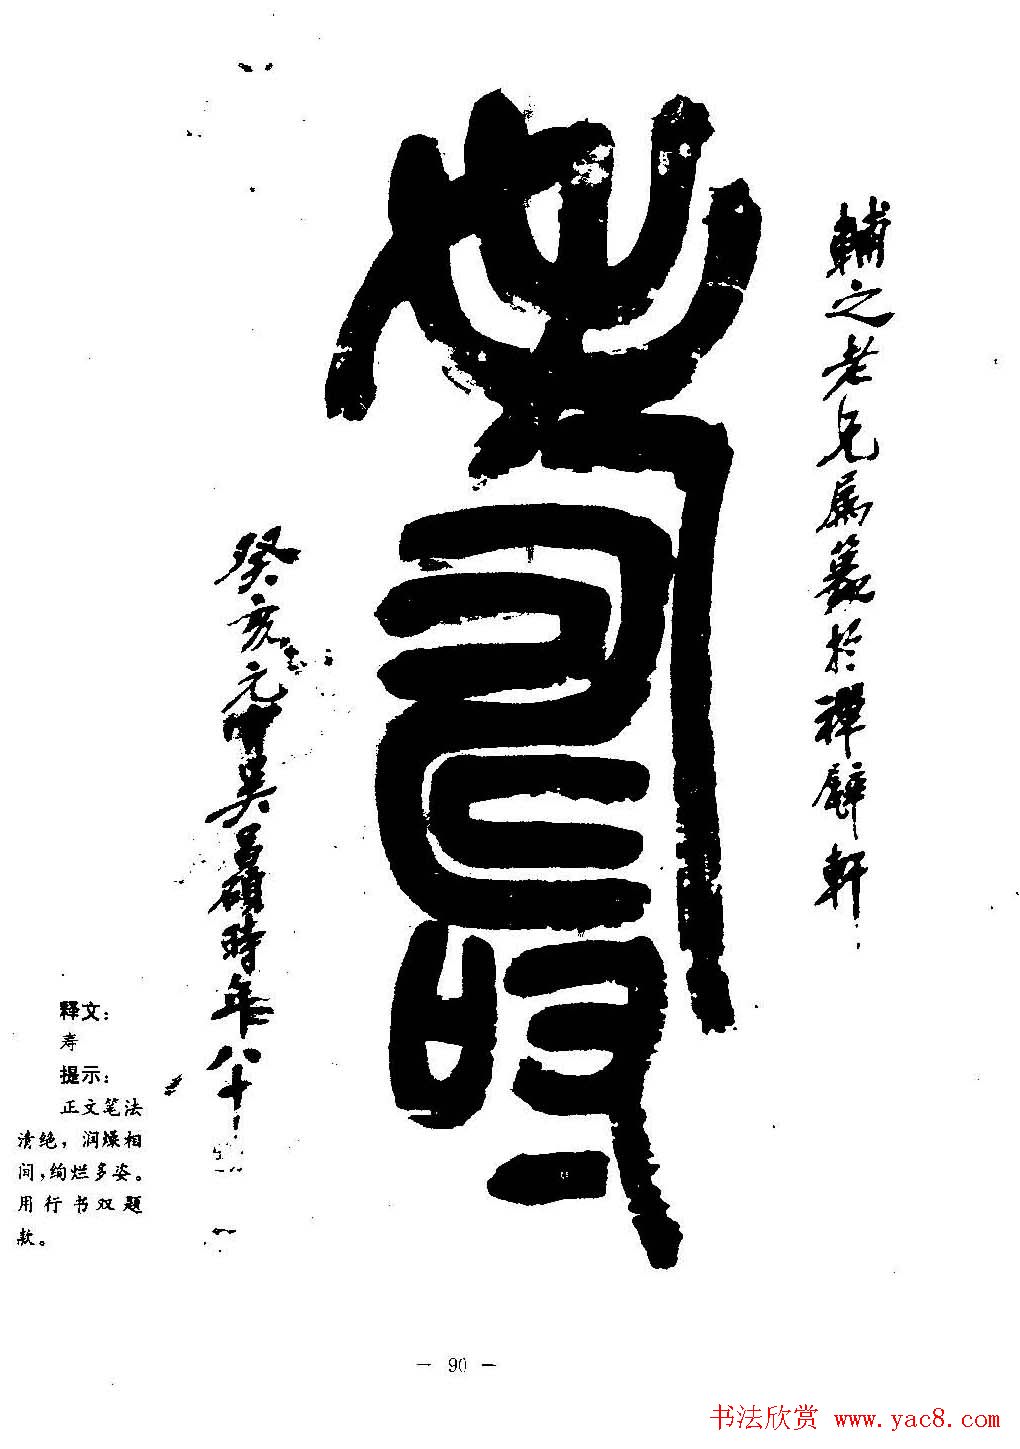 壽
輔之老兄屬篆於禪甓軒
癸亥元宵吳昌碩時年八十
释文：
寿
提示：
正文笔法
清绝，润燥相
间，绚烂多姿。
用行书双题
款。
- 90 -
书法欣赏 www.yac8.com